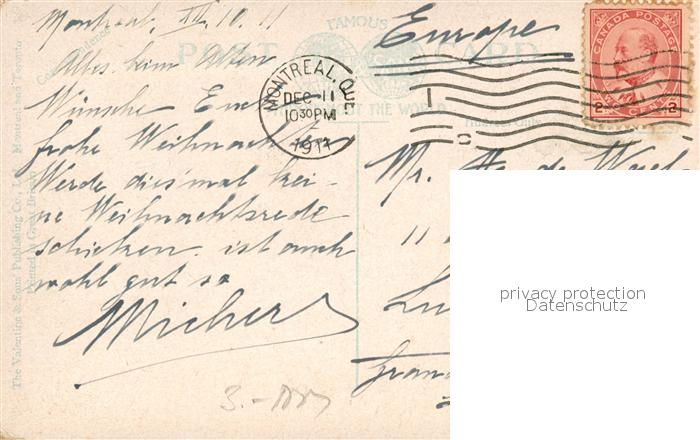 Montreal, XII. 10. 11
Alles beim Alten
Wünsche Euch
frohe Weihnachten
Werde dies'mal kei-
ne Weihnachtsrede
schicken. ist auch
wohl gut so
FAMOUS
POST CARD
THROUGHOUT THE WORLD
Correspondence
The Valentine & Sons Publishing Co., Ltd. Montreal and Toronto
Printed in Great Britain
MONTREAL, QUE
DEC 11
10 30 PM
1911
Europe
CANADA POSTAGE
2 CENTS 2
Mr.
11
Lu
Grand
privacy protection
Datenschutz
3.-